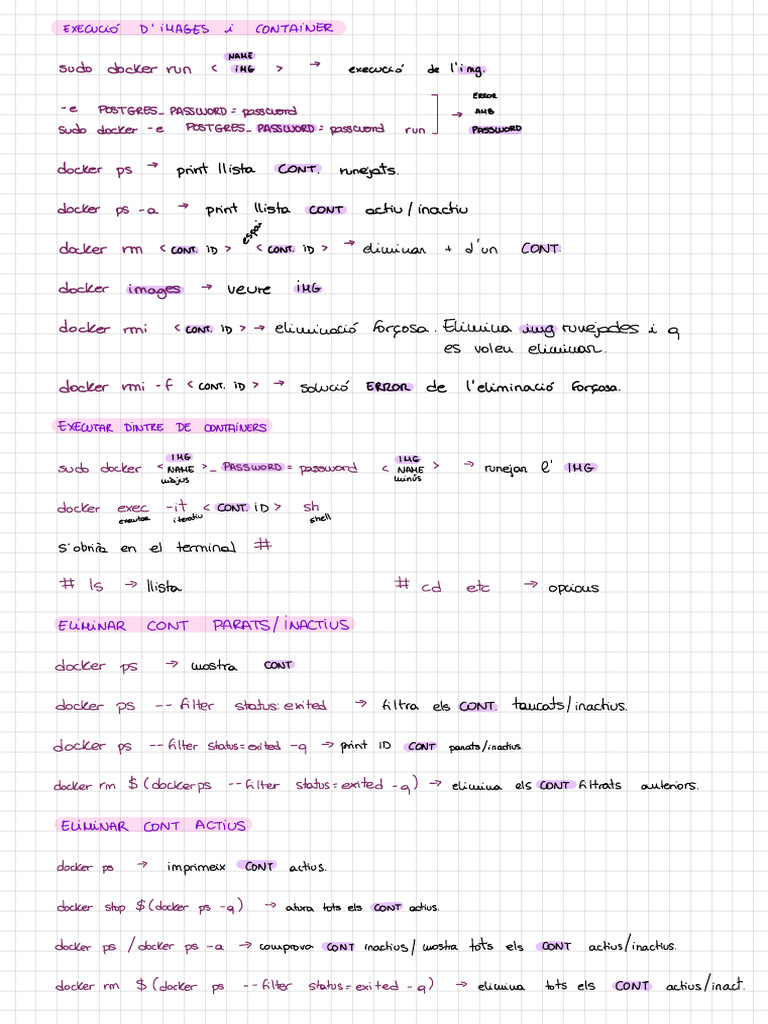 EXECUCIÓ D'IMAGES i CONTAINER
sudo docker run < NAME IMG > → execució de l'img.
-e POSTGRES_PASSWORD = password
sudo docker -e POSTGRES_PASSWORD = password run → ERROR AMB PASSWORD
docker ps → print llista CONT. runejats.
docker ps -a → print llista CONT actiu/inactiu
docker rm < CONT. ID > espai < CONT. ID > → eliminar + d'un CONT
docker images → veure IMG
docker rmi < CONT. ID > → eliminació forçosa. Elimina img runejades i q
es voleu eliminar.
docker rmi -f < CONT. ID > → solució ERROR de l'eliminació forçosa.
EXECUTAR DINTRE DE CONTAINERS
sudo docker < IMG NAME >_ PASSWORD = password < IMG NAME > → runejar l' IMG
majus minús
docker exec -it < CONT. ID > sh
executar iteratiu shell
s'obrirà en el terminal #
# ls → llista # cd etc → opcions
ELIMINAR CONT PARATS/INACTIUS
docker ps → mostra CONT
docker ps --filter status:exited → filtra els CONT. tancats/inactius.
docker ps --filter status=exited -q → print ID CONT parats/inactius
docker rm $(dockerps --filter status=exited -q) → elimina els CONT filtrats anteriors.
ELIMINAR CONT ACTIUS
docker ps → imprimeix CONT actius.
docker stop $(docker ps -q) → atura tots els CONT actius.
docker ps /docker ps -a → comprova CONT inactius/ mostra tots els CONT actius/inactius.
docker rm $(docker ps --filter status=exited -q) → elimina tots els CONT actius/inact.